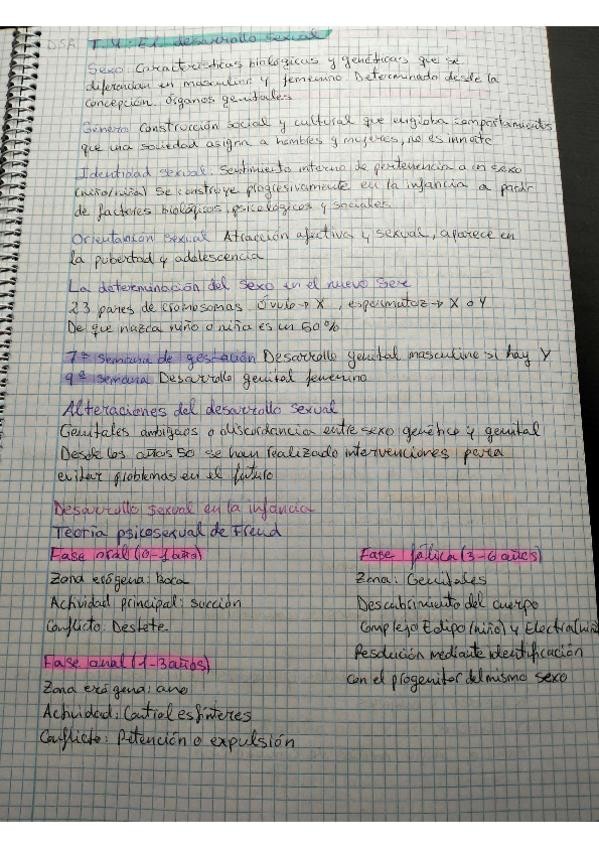 DSA T.4: El desarrollo sexual
Sexo: Características biológicas y genéticas que se
diferencian en masculino y femenino. Determinado desde la
concepción. Órganos genitales
Género: Construcción social y cultural que engloba comportamientos
que una sociedad asigna a hombres y mujeres, no es innoto
Identidad sexual: Sentimiento interno de pertenencia a un sexo
(niño/niña) Se construye progresivamente en la infancia a partir
de factores biológicos, psicológicos y sociales
Orientación sexual Atracción afectiva y sexual, aparece en
la pubertad y adolescencia
La determinación del sexo en el nuevo ser
23 pares de cromosomas Óvulo → X, espermatoz → X o Y
De que nazca niño o niña es un 50%
7ª semana de gestación Desarrollo genital masculino si hay Y
9ª semana Desarrollo genital femenino
Alteraciones del desarrollo sexual
Genitales ambiguos o discordancia entre sexo genético y genital
Desde los años 50 se han realizado intervenciones para
evitar problemas en el futuro
Desarrollo sexual en la infancia
Teoría psicosexual de Freud
Fase oral (0-1 año)
Zona erógena: Boca
Actividad principal: succión
Conflicto: Destete
Fase anal (1-3 años)
Zona erógena: ano
Actividad: Control esfínteres
Conflicto: Retención o expulsión
Fase fálica (3-6 años)
Zona: Genitales
Descubrimiento del cuerpo
Complejo Edipo (niño) y Electra (niña
Resolución mediante identificación
con el progenitor del mismo sexo